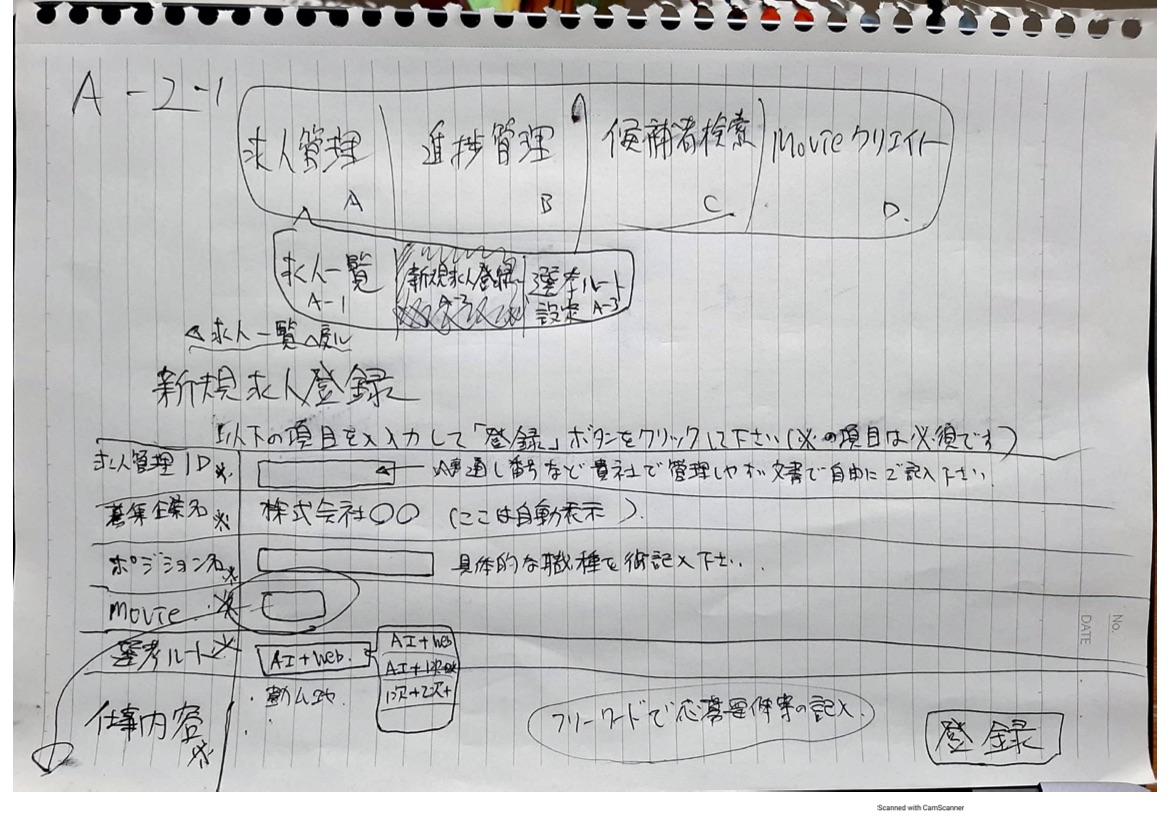 A-2-1
求人管理 A
進捗管理 B
候補者検索 C
Movieクリエイト D.
求人一覧 A-1
新規求人登録
選考ルート
設定 A-3
求人一覧へ戻ル
新規求人登録
以下の項目を入力して「登録」ボタンをクリックして下さい(※の項目は必須です)
求人管理ID※
通し番号など貴社で管理しやすい文書で自由にご記入下さい.
募集企業名※
株式会社〇〇 (ここは自動表示)
ポジション名※
具体的な職種を御記入下さい.
Movie ※
選考ルート※
AI+Web.
AI+Web
AI+1次
1次+2次+
仕事内容※
・勤ム地
フリーワードで応募要件等の記入
登録
No.
DATE
Scanned with CamScanner